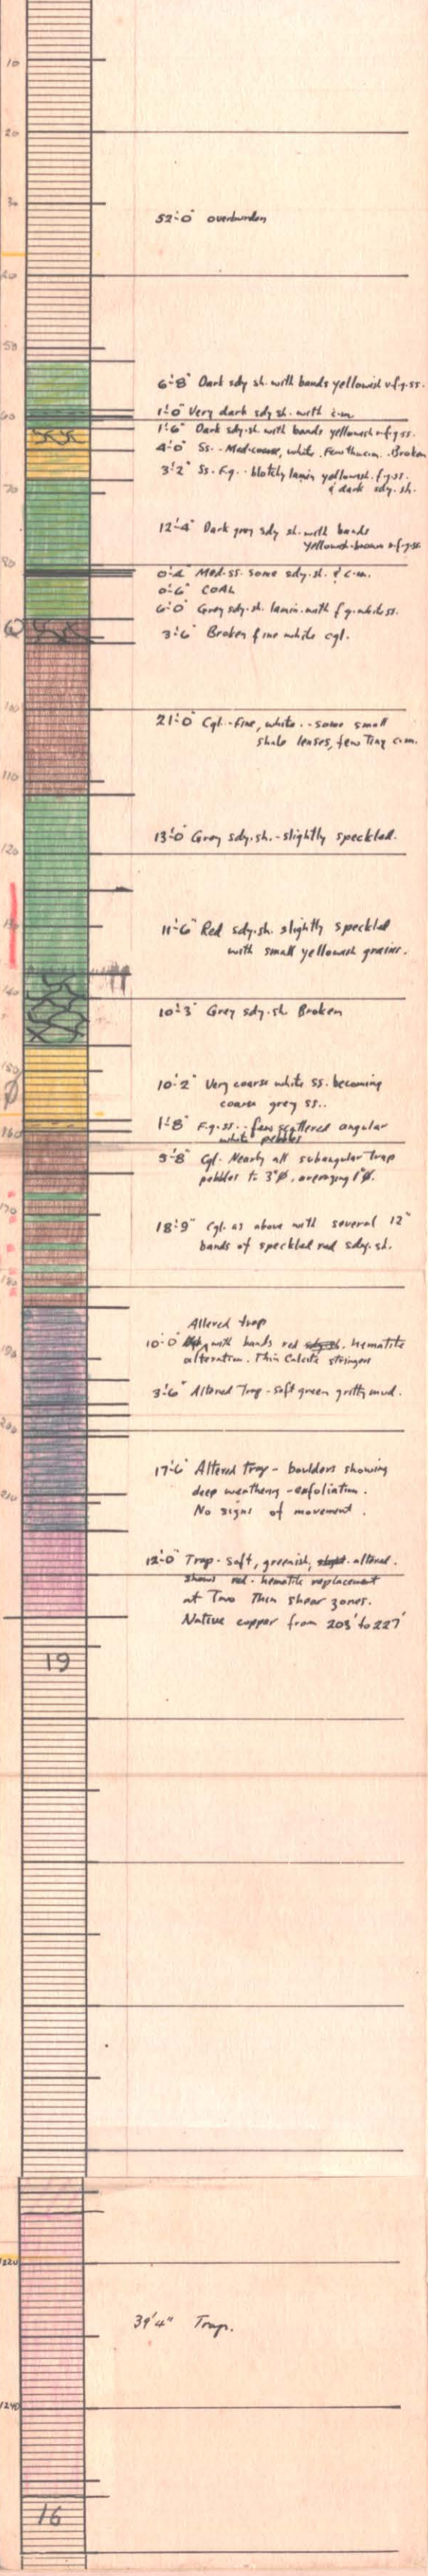 10
20
30
52'-0" overburden
40
50
6'-8" Dark sdy sh. with bands yellowish v.f.g.ss.
1'-0" Very dark sdy sh. with c.m.
60
1'-6" Dark sdy.sh. with bands yellowish v.f.g.ss.
4'-0" Ss. - Med-coarse, white. Few thin c.m. Broken
3'-2" Ss. F.g. - blotchy lamin yellowish. f.g.ss.
& dark sdy. sh.
70
12'-4" Dark grey sdy sh. with bands
yellowish-brown v.f.g.ss.
80
Med. ss. some sdy. sh. & c.m.
0'-6" COAL
6'-0" Grey sdy. sh. lamin. with f.g. white ss.
3'-6" Broken fine white cgl.
100
21'-0" Cgl. - fine, white. - some small
shale lenses, few Tiny c.m.
110
13'-0" Grey sdy. sh. - slightly speckled.
120
130
11'-6" Red sdy. sh. slightly speckled
with small yellowish grains.
140
10'-3" Grey sdy. sh. Broken
150
10'-2" Very coarse white ss. becoming
coarse grey ss..
1'-8" F.g. ss. - few scattered angular
white pebbles
160
Cgl. Nearly all subangular trap
pebbles to 3"Ø, averaging 1"Ø.
170
18'-9" Cgl. as above with several 12"
bands of speckled red sdy. sh.
180
Altered trap
10'-0" with bands red hematite
alteration. Thin Calcite stringers
190
3'-6" Altered Trap - soft green gritty mud.
200
17'-6" Altered trap - boulders showing
deep weathering - exfoliation.
No signs of movement.
210
12'-0" Trap - soft, greenish, altered.
shows red - hematite replacement
at Two Thin shear zones.
Native copper from 203' to 227'
19
1220
39'4" Trap.
1240
16